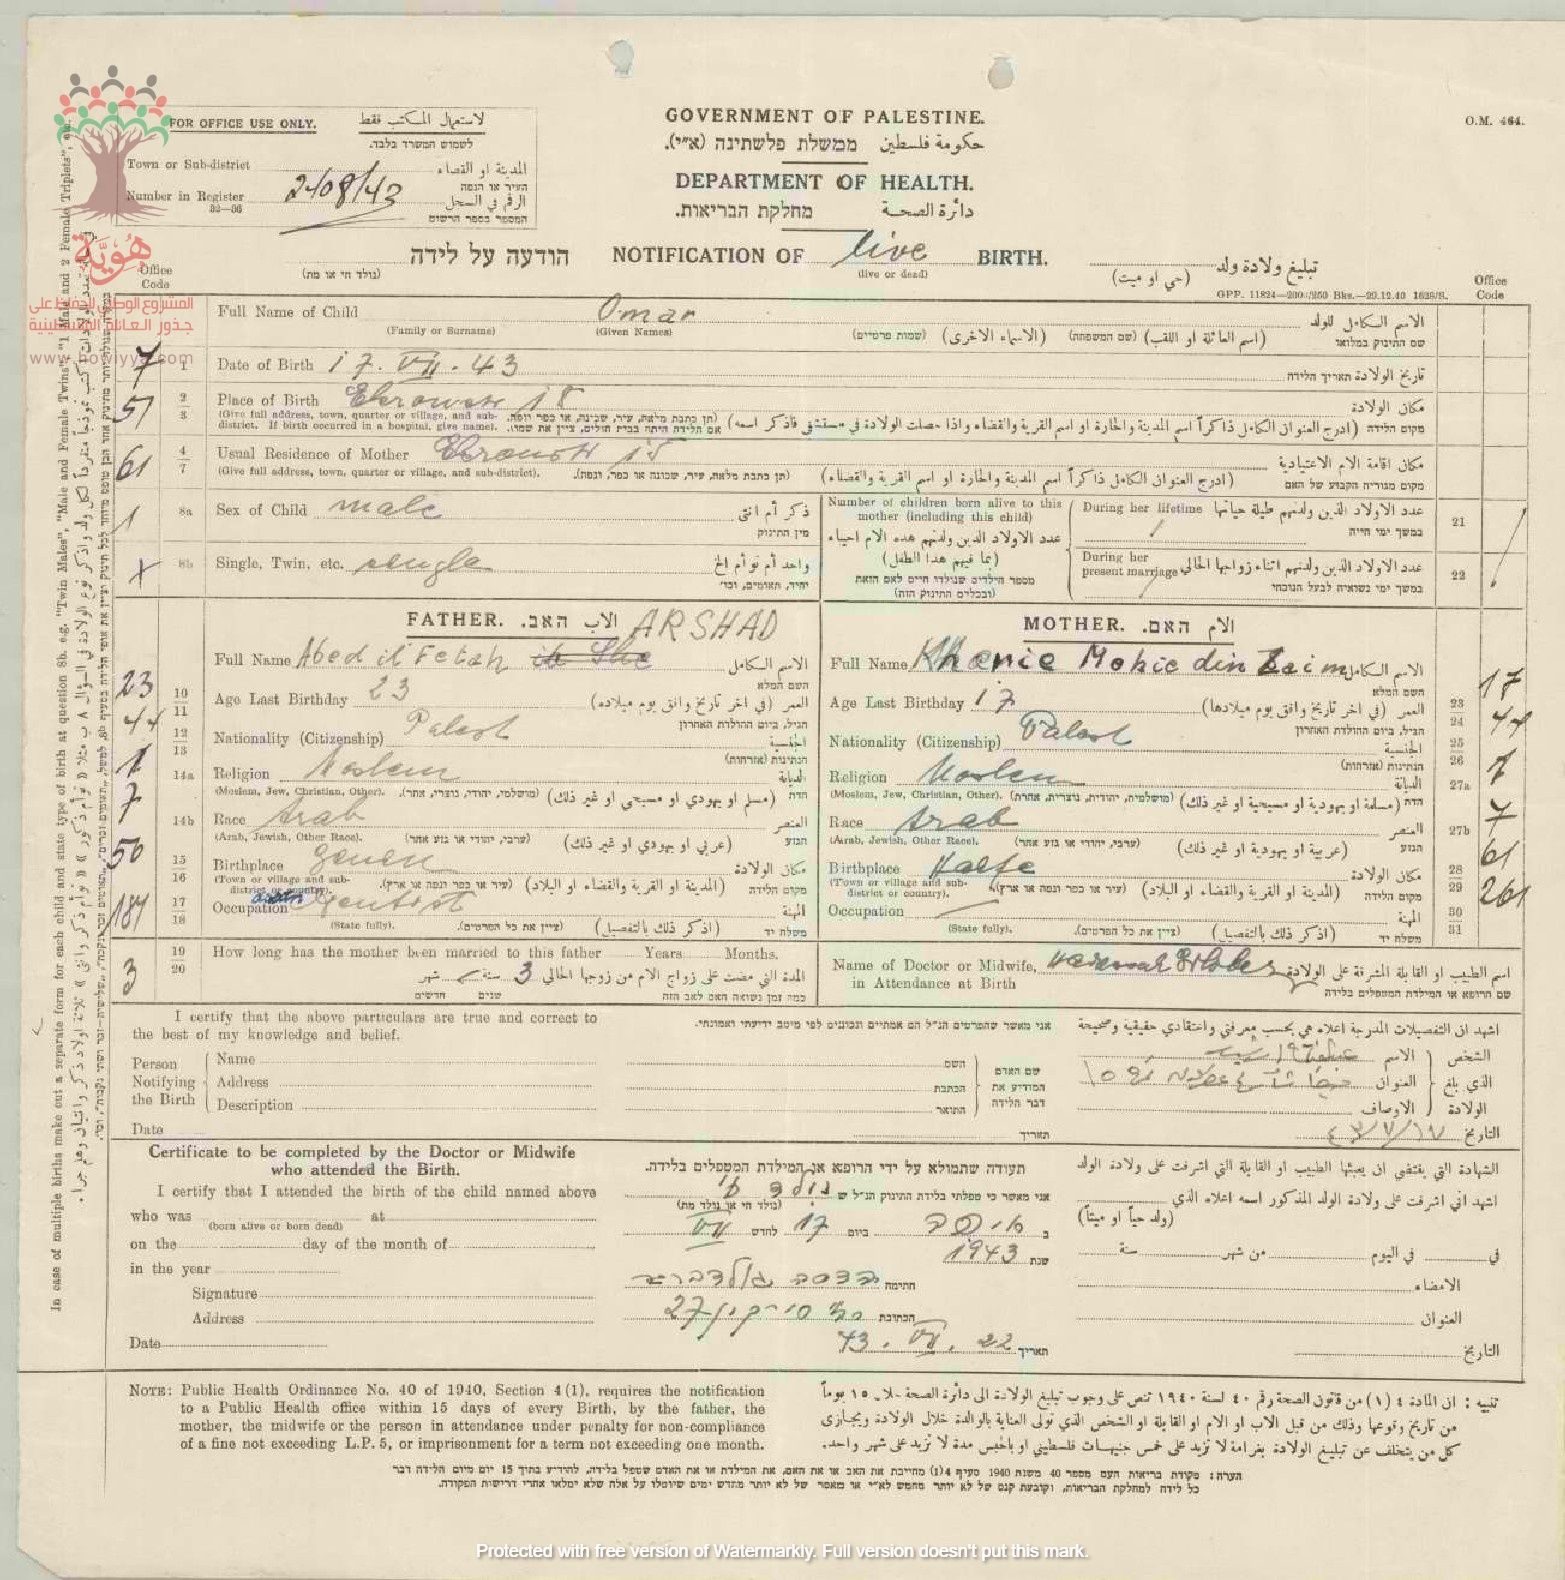 GOVERNMENT OF PALESTINE.
O.M. 464.
FOR OFFICE USE ONLY. لاستعمال المكتب فقط
לשמוש המשרד בלבד.
ממשלת פלשתינה (א״י). حكومة فلسطين
Town or Sub-district المدينة او القضاء
העיר או הנפה
DEPARTMENT OF HEALTH.
Number in Register 2108/43 الرقم في السجل
32—36 המספר בספר הרשום
מחלקת הבריאות. دائرة الصحة
הודעה על לידה NOTIFICATION OF live BIRTH. تبليغ ولادة ولد
(נולד חי או מת) (live or dead) (حي او ميت)
هُويّة
المشروع الوطني للحفاظ على
جذور العائلة الفلسطينية
www.howiyya.com
Office Code
GPP. 11824—2000/250 Bks.—29.12.40 1628/S.
Office Code
Full Name of Child Omar الاسم الكامل للولد
(Family or Surname) (Given Names) (שמות פרטיים) (الاسماء الاخرى) (שם המשפחה) (اسم العائلة او اللقب) שם התינוק במלואו
7 1 Date of Birth 17. VII. 43 تاريخ الولادة תאריך הלידה
57 2 3 Place of Birth 18 مكان الولادة
(Give full address, town, quarter or village, and sub-district. If birth occurred in a hospital, give name). (תן כתבת מלאה, עיר, שכונה, או כפר ונפה. אם הלידה היתה בבית חולים, ציין את שמו). (ادرج العنوان الكامل ذاكراً اسم المدينة والحارة او اسم القرية والقضاء واذا حصلت الولادة في مستشفى فاذكر اسمه) מקום הלידה
61 4 7 Usual Residence of Mother 15 مكان اقامة الام الاعتيادية
(Give full address, town, quarter or village, and sub-district). (תן כתבת מלאה, עיר, שכונה או כפר, ונפה). (ادرج العنوان الكامل ذاكراً اسم المدينة والحارة او اسم القرية والقضاء) מקום מגוריה הקבוע של האם
1 8a Sex of Child male ذكر أم انثى
מין התינוק
Number of children born alive to this mother (including this child)
عدد الاولاد الذين ولدتهم هذه الام احياء (بما فيهم هذا الطفل)
מספר הילדים שנולדו חיים לאם הזאת (ובכללים התינוק הזה)
During her lifetime عدد الاولاد الذين ولدتهم طيلة حياتها 21
1 במשך ימי חייה
X 8b Single, Twin, etc. single واحد أم توأم الخ
יחיד, תאומים, וכד׳
During her present marriage عدد الاولاد الذين ولدتهم اثناء زواجها الحالي 22
1 במשך ימי נשואיה לבעל הנוכחי
FATHER. الاب האב. ARSHAD
Full Name Abed il Fetah الاسم الكامل
השם המלא
23 10 11 Age Last Birthday 23 العمر (في اخر تاريخ وافق يوم ميلاده)
הגיל, ביום ההולדת האחרון
44 12 13 Nationality (Citizenship) Palest الجنسية
הנתינות (אזרחות)
1 14a Religion Moslem الديانة
(Moslem, Jew, Christian, Other). (מושלמי, יהודי, נוצרי, אחר). (مسلم او يهودي او مسيحي او غير ذلك) הדת
7 14b Race Arab العنصر
(Arab, Jewish, Other Race). (ערבי, יהודי או גזע אחר) (عربي او يهودي او غير ذلك) הגזע
50 15 16 Birthplace Genen مكان الولادة
(Town or village and sub-district or country). (עיר או כפר ונפה או ארץ). (المدينة او القرية والقضاء او البلاد) מקום הלידה
187 17 18 Occupation Dentist المهنة
(State fully). (ציין את כל הפרטים). (اذكر ذلك بالتفصيل) משלח יד
MOTHER. الام האם.
Full Name Kherie Mohie din Zaim الاسم الكامل 17
השם המלא
Age Last Birthday 17 العمر (في اخر تاريخ وافق يوم ميلادها) 23 24 44
הגיל, ביום ההולדת האחרון
Nationality (Citizenship) Palest الجنسية 25 26
הנתינות (אזרחות)
Religion Moslem الديانة 27a 1
(Moslem, Jew, Christian, Other). (מושלמית, יהודית, נוצרית, אחרת) (مسلمة او يهودية او مسيحية او غير ذلك) הדת
Race Arab العنصر 27b 7
(Arab, Jewish, Other Race). (ערבי, יהודי או גזע אחר) (عربية او يهودية او غير ذلك) הגזע
Birthplace Haifa مكان الولادة 28 29 61
(Town or village and sub-district or country). (עיר או כפר ונפה או ארץ) (المدينة او القرية والقضاء او البلاد) מקום הלידה
Occupation — المهنة 30 31 261
(State fully). (ציין את כל הפרטים). (اذكر ذلك بالتفصيل) משלח יד
3 19 20 How long has the mother been married to this father Years Months.
المدة التي مضت على زواج الام من زوجها الحالي 3 سنة شهر
כמה זמן נשואה האם לאב הזה שנים חדשים
Name of Doctor or Midwife, in Attendance at Birth اسم الطبيب او القابلة المشرفة على الولادة
שם הרופא או המילדת המטפלים בלידה
I certify that the above particulars are true and correct to the best of my knowledge and belief.
אני מאשר שהפרטים הנ״ל הם אמתיים ונכונים לפי מיטב ידיעתי ואמונתי.
اشهد ان التفصيلات المدرجة اعلاه هي بحسب معرفتي واعتقادي حقيقية وصحيحة
Person Notifying the Birth
Name השם
Address הכתבת
Description התואר
שם האדם המודיע את דבר הלידה
الشخص الذي بلغ الولادة
الاسم
العنوان
الاوصاف
Date תאריך التاريخ ٤٣/٧/١٧
Certificate to be completed by the Doctor or Midwife who attended the Birth.
I certify that I attended the birth of the child named above
who was at
(born alive or born dead)
on the day of the month of
in the year
Signature
Address
Date
תעודה שתמולא על ידי הרופא או המילדת המטפלים בלידה.
אני מאשר כי טפלתי בלידת התינוק הנ״ל ש נולד חי
(נולד חי או נולד מת)
ב חיפה ביום 17 לחדש VII
שנת 1943
חתימה הדסה גולדברג
הכתובת רח׳ סירקין 27
תאריך 22. VII. 43
الشهادة التي يقتضي ان يعبئها الطبيب او القابلة التي اشرفت على ولادة الولد
اشهد اني اشرفت على ولادة الولد المذكور اسمه اعلاه الذي
(ولد حياً او ميتاً)
في في اليوم من شهر سنة
الامضاء
العنوان
التاريخ
NOTE: Public Health Ordinance No. 40 of 1940, Section 4 (1), requires the notification
to a Public Health office within 15 days of every Birth, by the father, the
mother, the midwife or the person in attendance under penalty for non-compliance
of a fine not exceeding L.P. 5, or imprisonment for a term not exceeding one month.
تنبيه : ان المادة ٤ (١) من قانون الصحة رقم ٤٠ لسنة ١٩٤٠ تنص على وجوب تبليغ الولادة الى دائرة الصحة خلال ١٥ يوماً
من تاريخ وقوعها وذلك من قبل الاب او الام او القابلة او الشخص الذي تولى العناية بالوالدة خلال الولادة ويجازى
كل من يتخلف عن تبليغ الولادة بغرامة لا تزيد على خمس جنيهات فلسطيني او بالحبس مدة لا تزيد على شهر واحد.
הערה: פקודת בריאות העם מספר 40 משנת 1940 סעיף 4(1) מחייבת את האב או את האם, את המילדת או את האדם שטפל בלידה, להודיע בתוך 15 יום מיום הלידה דבר
כל לידה למחלקת הבריאות, וקובעת קנס של לא יותר מחמש לא״י או מאסר של לא יותר מחדש ימים שיוטלו על אלה שלא ימלאו אחרי דרישות הפקודה.
In case of multiple births make out a separate form for each child and state type of birth at question 8b. e.g. "Twin Males", "Male and Female Twins", "1 Male and 2 Female Triplets", etc.
Protected with free version of Watermarkly. Full version doesn't put this mark.